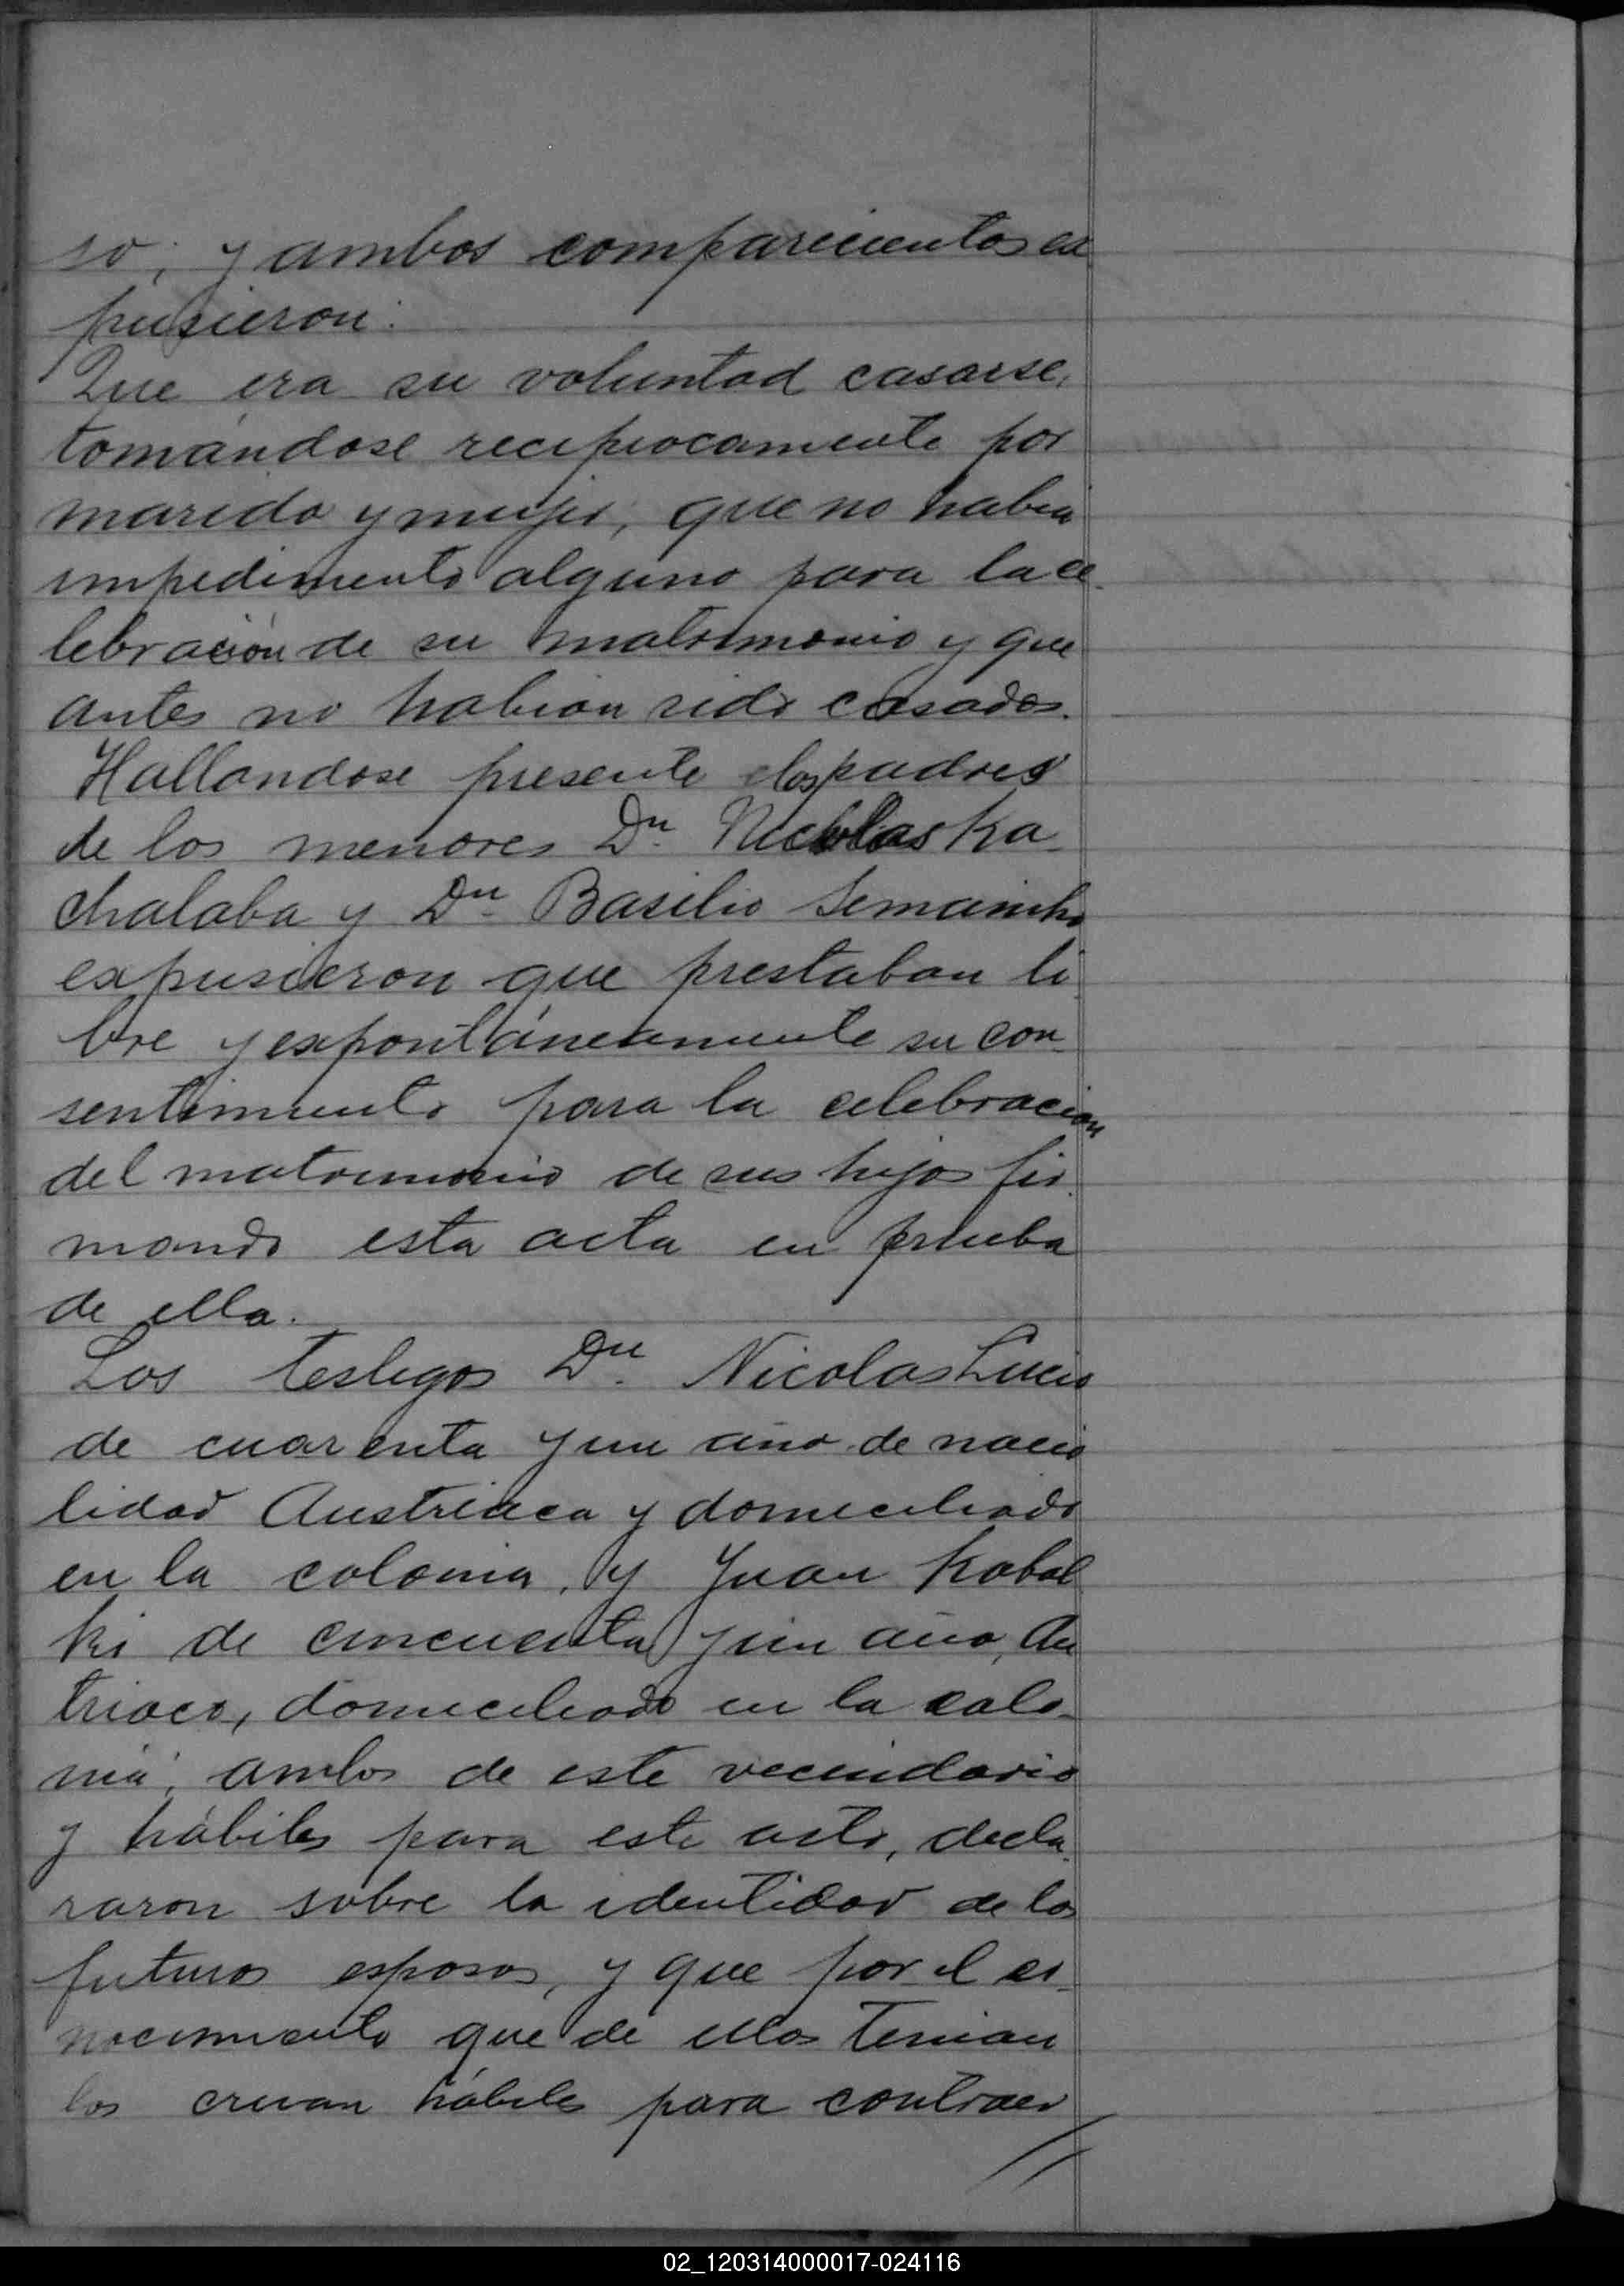 so; y ambos comparecientes ex
pusieron:
Que era su voluntad casarse,
tomándose reciprocamente por
marido y mujer; que no habia
impedimento alguno para la ce
lebración de su matrimonio y que
antes no habian sido casados.
Hallandose presente los padres
de los menores Dn. Nicolas Ka-
chalaba y Dn. Basilio Semanink
expusieron que prestaban li
bre y expontáneamente su con-
sentimiento para la celebracion
del matrimonio de sus hijos fir-
mando esta acta en prueba
de ella.
Los testigos Dn. Nicolas Lucio
de cuarenta y un año de nacio
lidad Austriaca y domiciliado
en la colonia, y Juan Kobal
ki de cincuenta y un año, Au
triaco, domiciliado en la colo-
nia; ambos de este vecindario
y hábiles para este acto, decla-
raron sobre la identidad de los
futuros esposos, y que por el co-
nocimiento que de ellos tenian
los creian hábiles para contraer
02_120314000017-024116